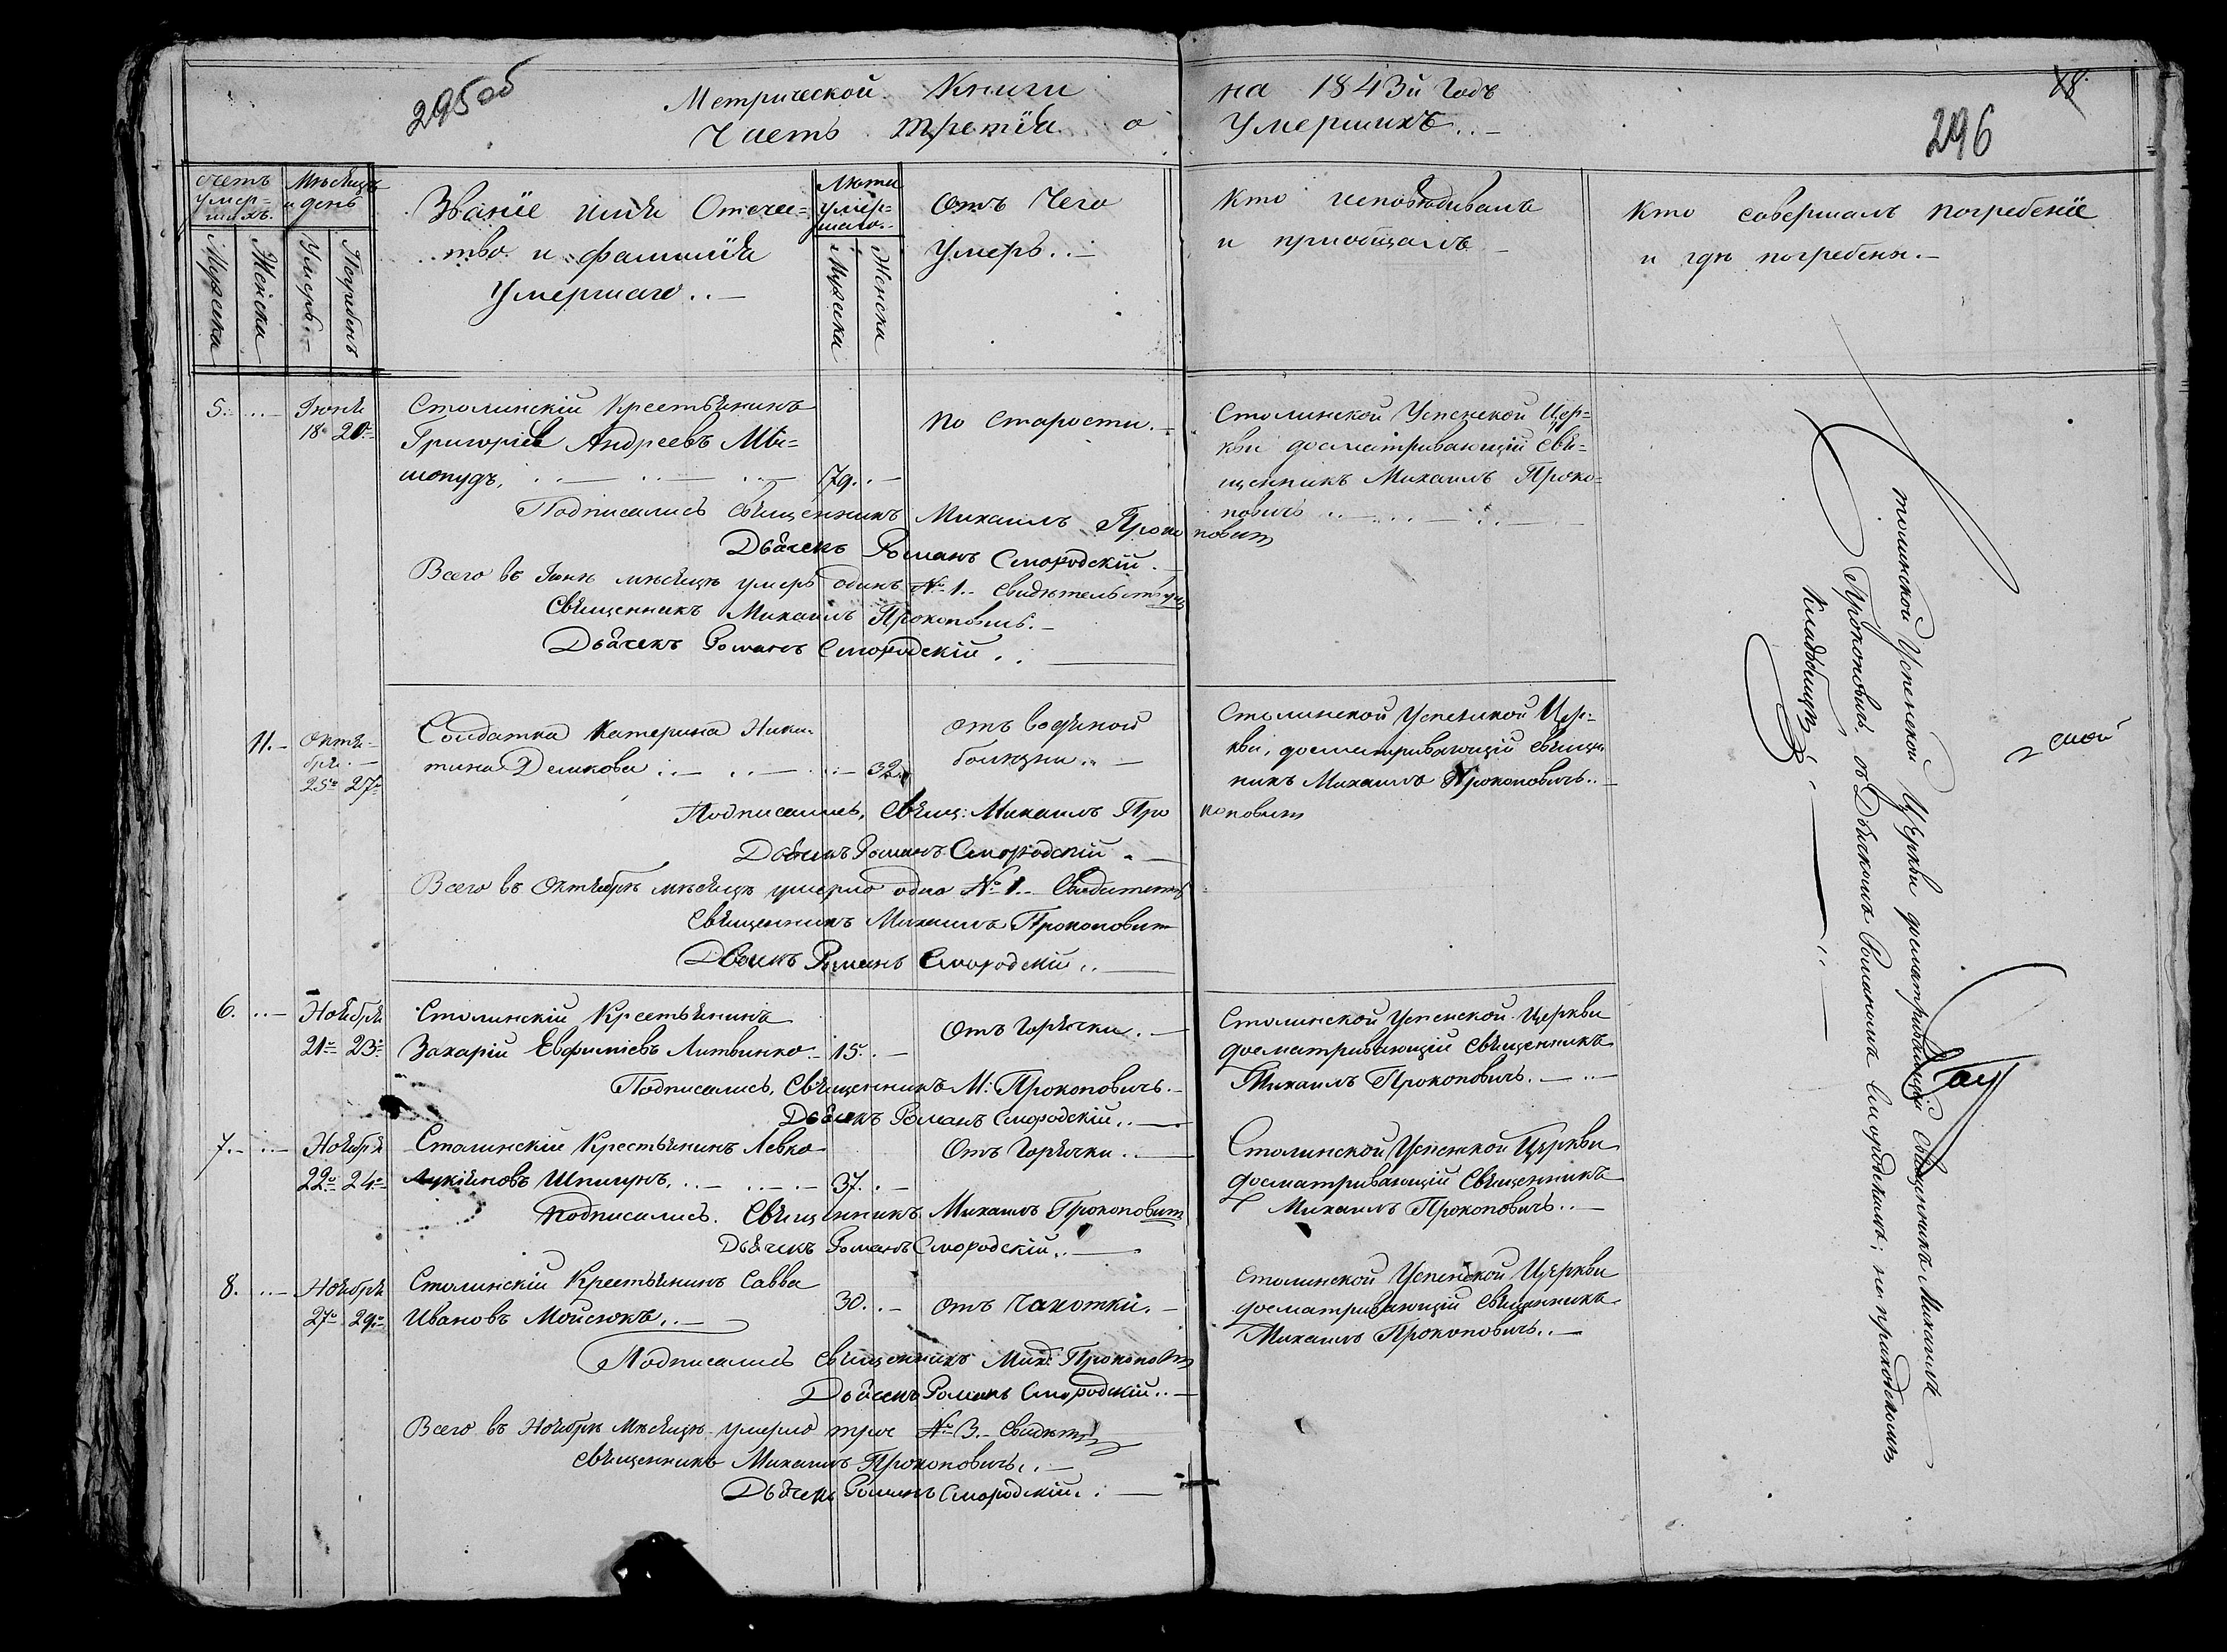 295об
Метрической Книги на 1843й Годъ
Часть Третїя о Умершихъ..
18.
296
счетъ умер=шихъ.
Мужеска
Женска
Мѣсяцъ и день
Умеръ
Погребенъ
Званїе имя Отечес=
тво и фамилїя
Умершаго..
Лѣта умер=шаго
Мужеска
Женска
Отъ Чего
Умеръ..
Кто исповѣдывалъ
и прїобщалъ
Кто совершалъ погребенїе
и гдѣ погребены.
5. Іюня 18 20
Столинскій Крестьянинъ
Григоріев Андреевъ
шопудъ. 79.
По Старости.
Столинской Успенской Цер=
кви досматривающій Свя=
щенникъ Михаилъ Проко=
повичъ
Подписались Священникъ Михаилъ Прокоповичъ
Дьячекъ Романъ Смородскій.
Всего въ Іюнѣ мѣсяцѣ умеръ одинъ № 1.
Священникъ Михаилъ Прокоповичъ.
Дьячекъ Романъ Смородскій..
11. Октября 25 27
Солдатка Катерина Ники=
тина Деликова 32
отъ водяной
болѣзни..
Столинской Успенской Цер=
кви, досматривающій Свяще
никъ Михаилъ Прокоповичъ..
Подписались, Свящ: Михаилъ Прокоповичъ
Дьячекъ Романъ Смородскій.
Всего въ Октябрѣ мѣсяцѣ умерло одно № 1.
Священникъ Михаилъ Прокоповичъ
Дьячекъ Романъ Смородскій..
6. Ноября 21 23
Столинскій Крестьянинъ
Захарій Евфиміевъ Литвинко. 15.
Отъ Горячки.
Столинской Успенской Церкви
досматривающій Священникъ
Михаилъ Прокоповичъ.
Подписались, Священникъ М: Прокоповичъ.
Дьячекъ Романъ Смородскій..
7. Ноября 22 24
Столинскій Крестьянинъ Левко
Лукіяновъ Шпигунъ. 37.
Отъ Горячки..
Столинской Успенской Церкви
досматривающій Священникъ
Михаилъ Прокоповичъ..
Подписались. Священникъ Михаилъ Прокоповичъ
Дьячекъ Романъ Смородскій..
8. Ноября 27 29
Столинскій Крестьянинъ Савва
Ивановъ Мойсюкъ.. 30.
отъ Чахотки.
Столинской Успенской Церкви
досматривающій Священникъ
Михаилъ Прокоповичъ..
Подписались Священникъ Мих: Прокоповичъ
Дьячекъ Романъ Смородскій..
Всего въ Ноябрѣ Мѣсяцѣ умерло трое № 3.
Священникъ Михаилъ Прокоповичъ..
Дьячекъ Романъ Смородскій..
толинской Успенской Церкви досматривающій Священникъ Михаилъ
Прокоповичъ съ Дьякомъ Романомъ Смородскимъ; на приходскомъ
Кладбищѣ